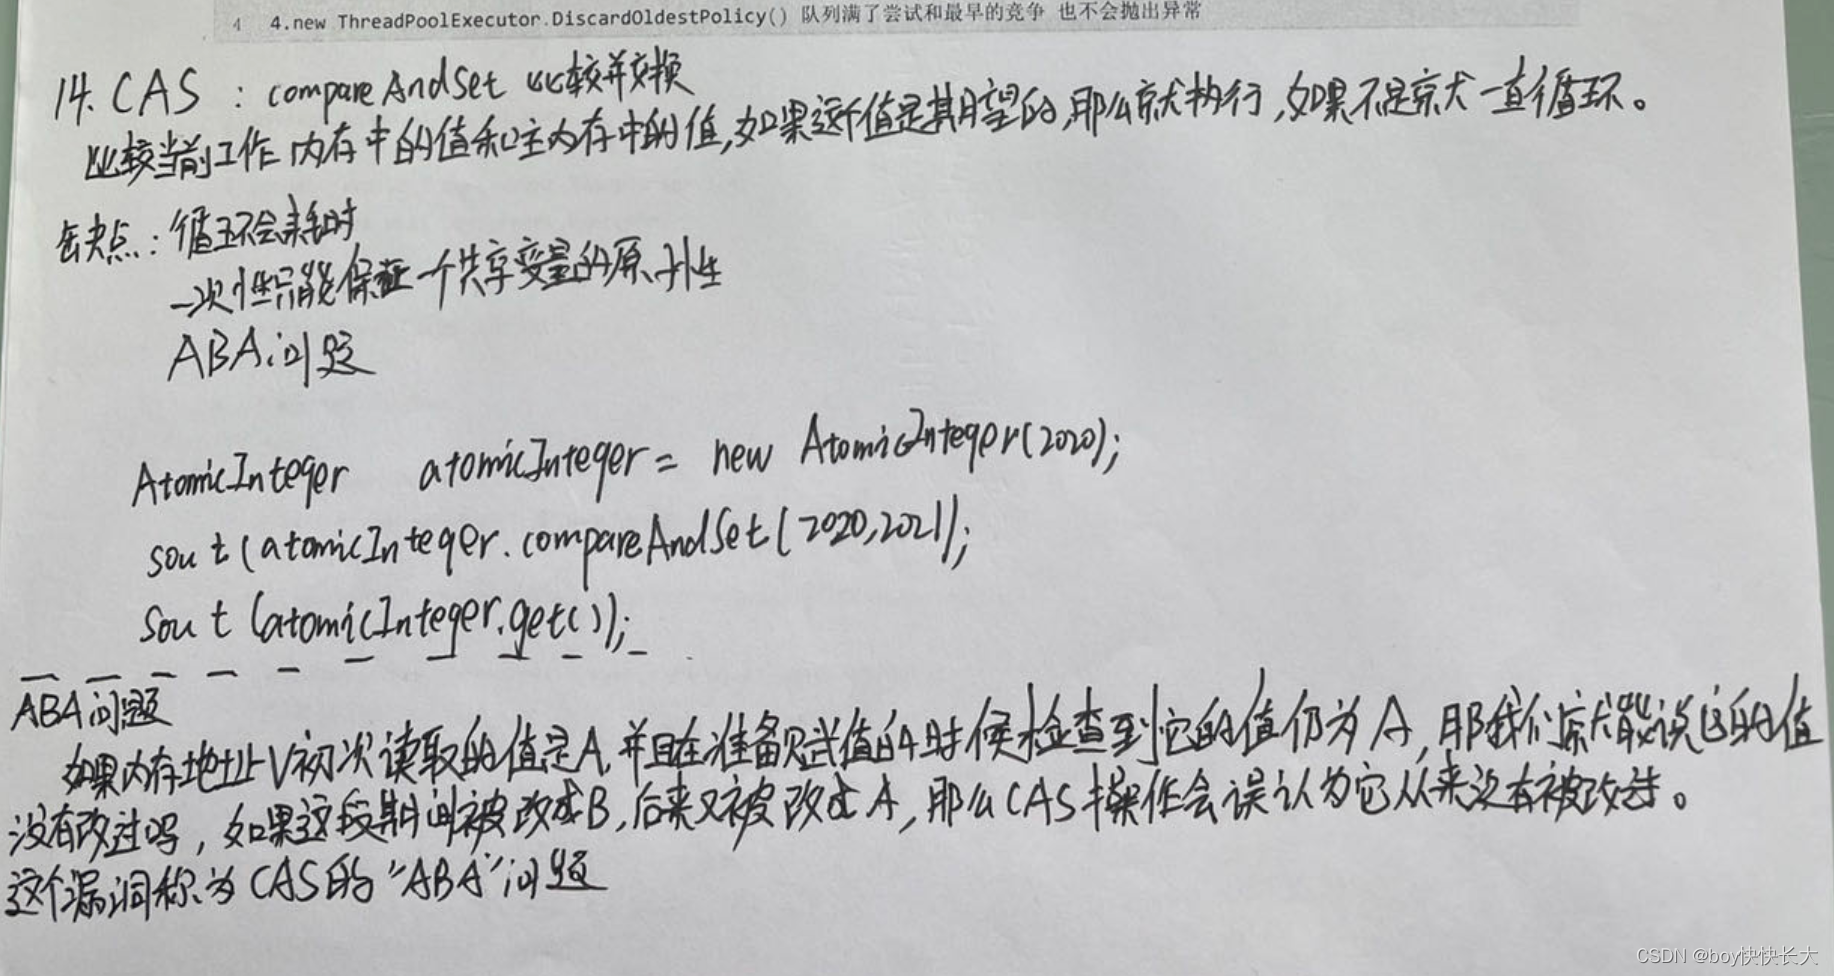 4 4.new ThreadPoolExecutor.DiscardOldestPolicy() 队列满了尝试和最早的竞争 也不会抛出异常
14. CAS : compareAndSet 比较并交换
比较当前工作内存中的值和主内存中的值,如果这个值是期望的,那么就执行,如果不是就一直循环。
缺点:循环会耗时
一次性只能保证一个共享变量的原子性
ABA问题
AtomicInteger atomicInteger = new AtomicInteger(2020);
sout(atomicInteger.compareAndSet(2020,2021);
sout(atomicInteger.get());
ABA问题
如果内存地址V初次读取的值是A,并且在准备赋值的时候检查到它的值仍为A,那我们就能说它的值
没有改过吗,如果这段期间被改成B,后来又被改成A,那么CAS操作会误认为它从来没有被改过。
这个漏洞称为CAS的"ABA"问题
CSDN @boy快快长大